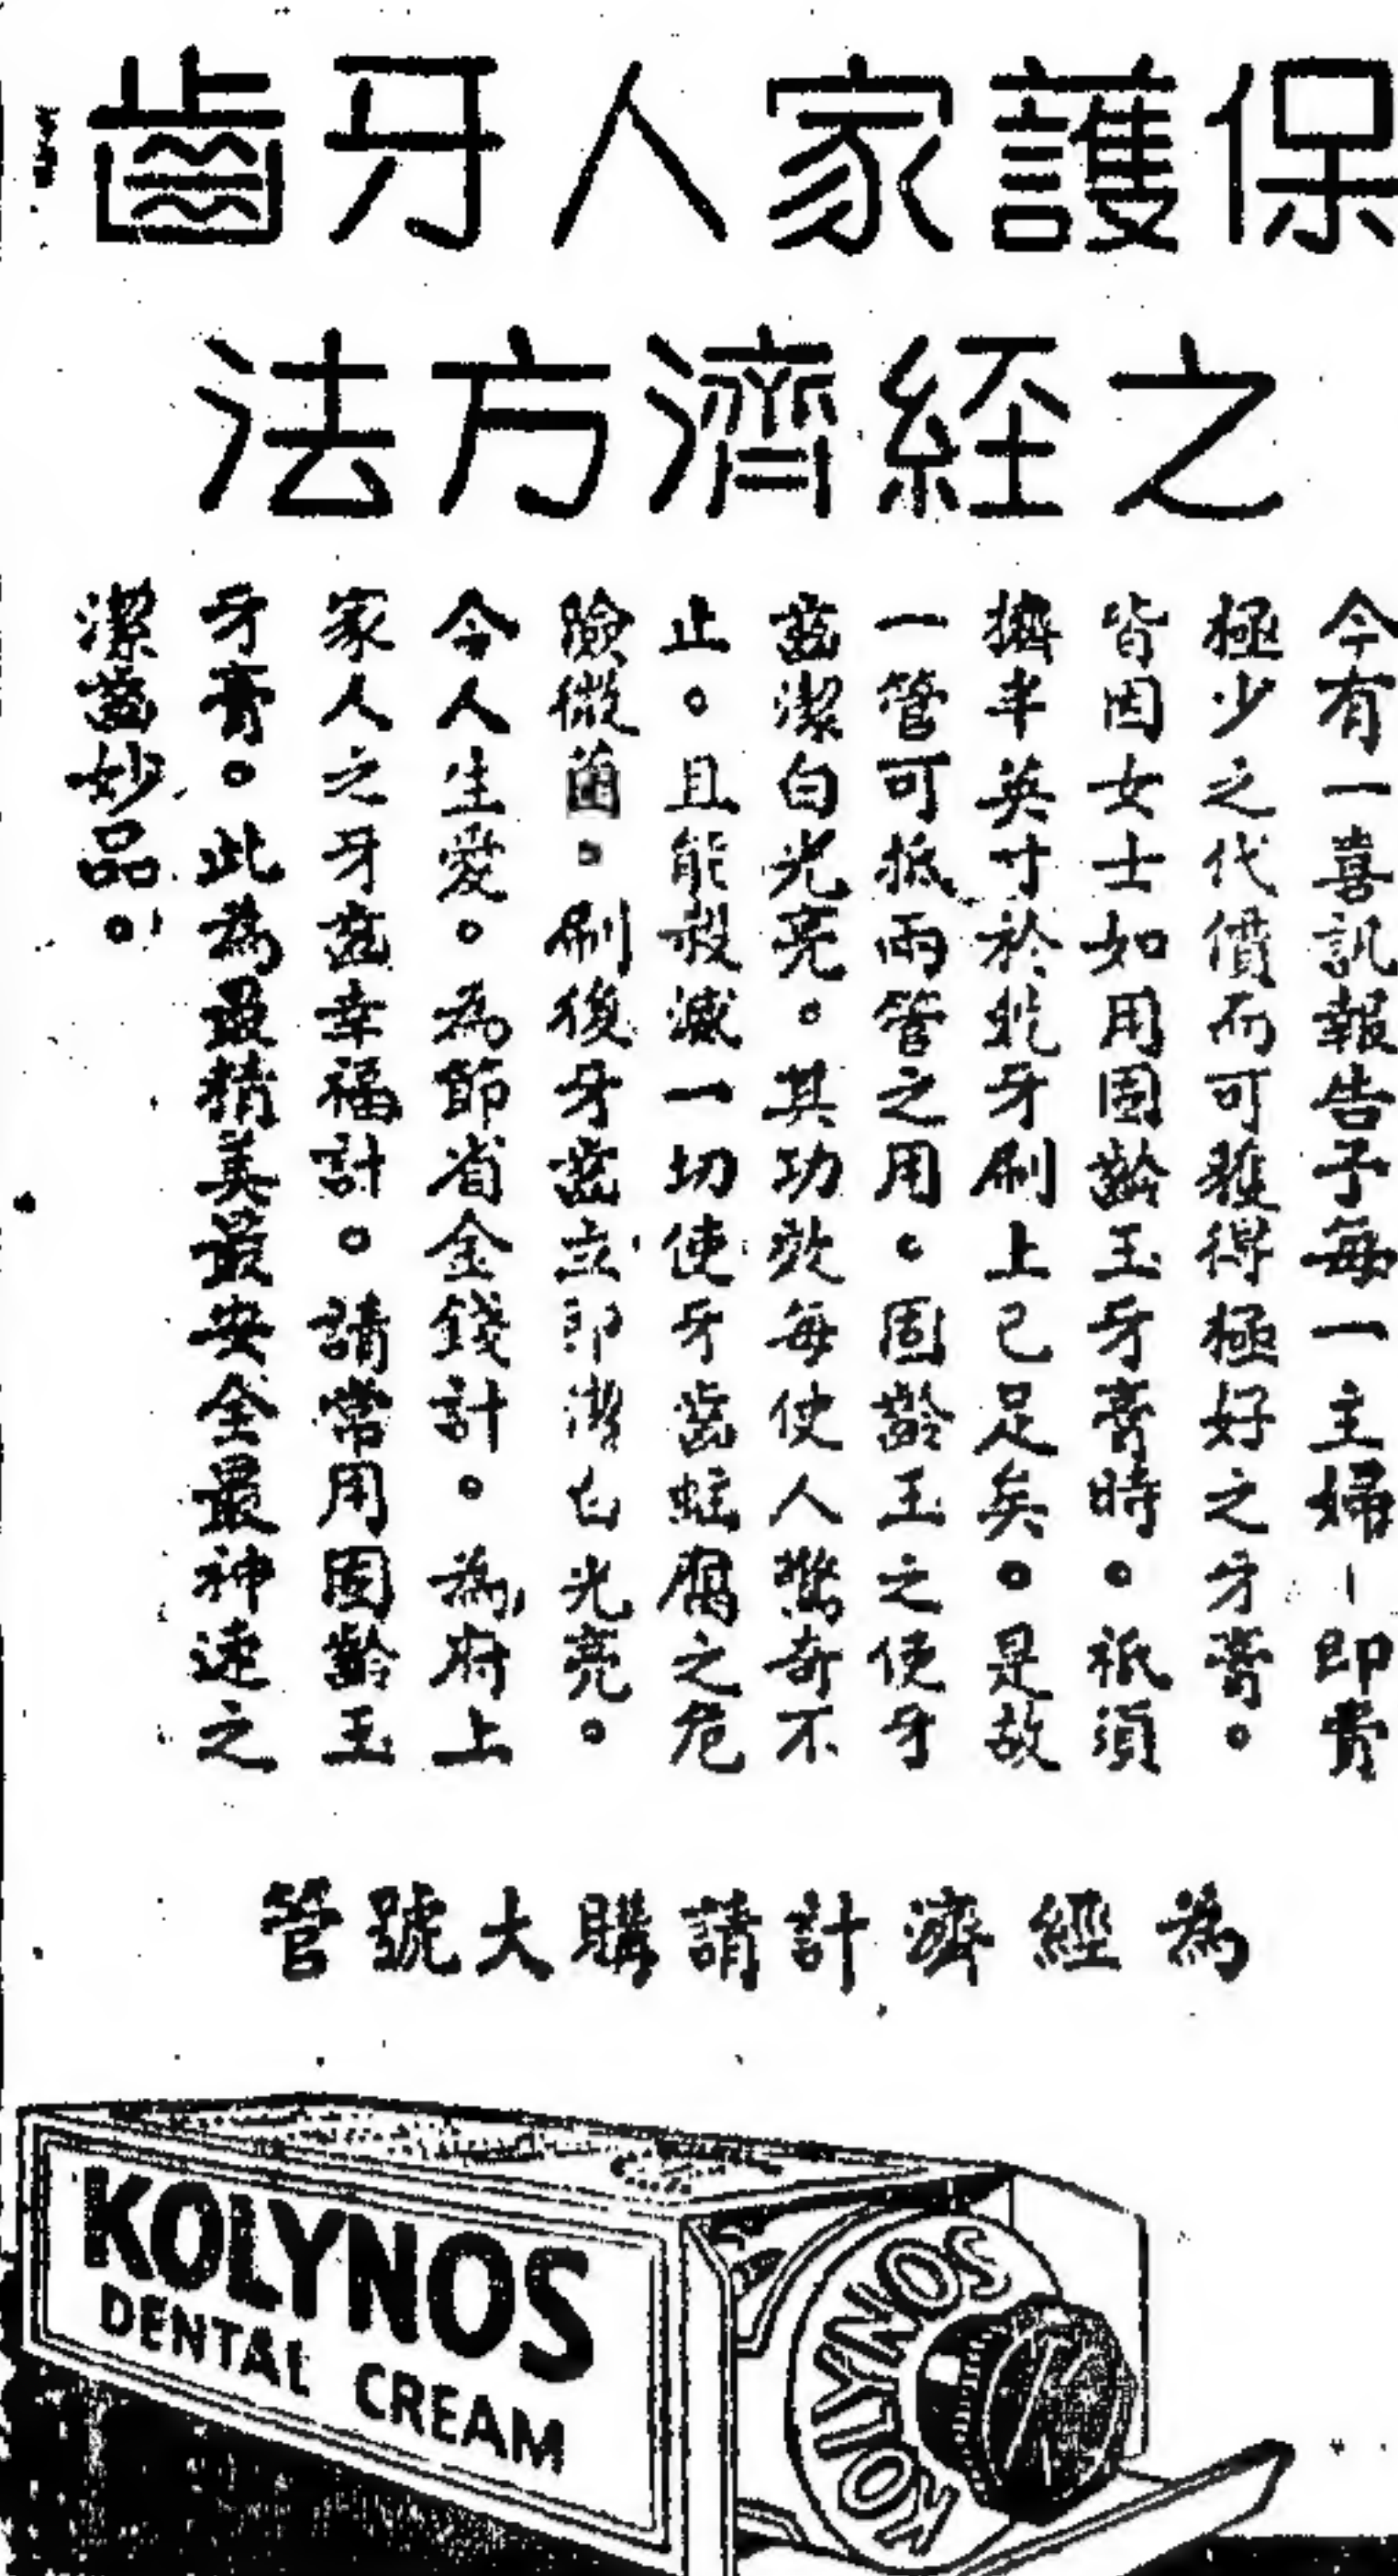 保護家人牙齒
之經濟方法
今有一喜訊報告予每一主婦－即費
極少之代價而可獲得極好之牙膏。
皆因女士如用固齡玉牙膏時。祇須
擠半英寸於乾牙刷上已足矣。是故
一管可抵兩管之用。固齡玉之使牙
齒潔白光亮。其功效每使人驚奇不
止。且能殺滅一切使牙齒蛀腐之危
險微菌。刷後牙齒立即潔白光亮。
今人生愛。為節省金錢計。為府上
家人之牙齒幸福計。請常用固齡玉
牙膏。此為最精美最安全最神速之
潔齒妙品。
為經濟計請購大號管
KOLYNOS
DENTAL CREAM
KOLYNOS